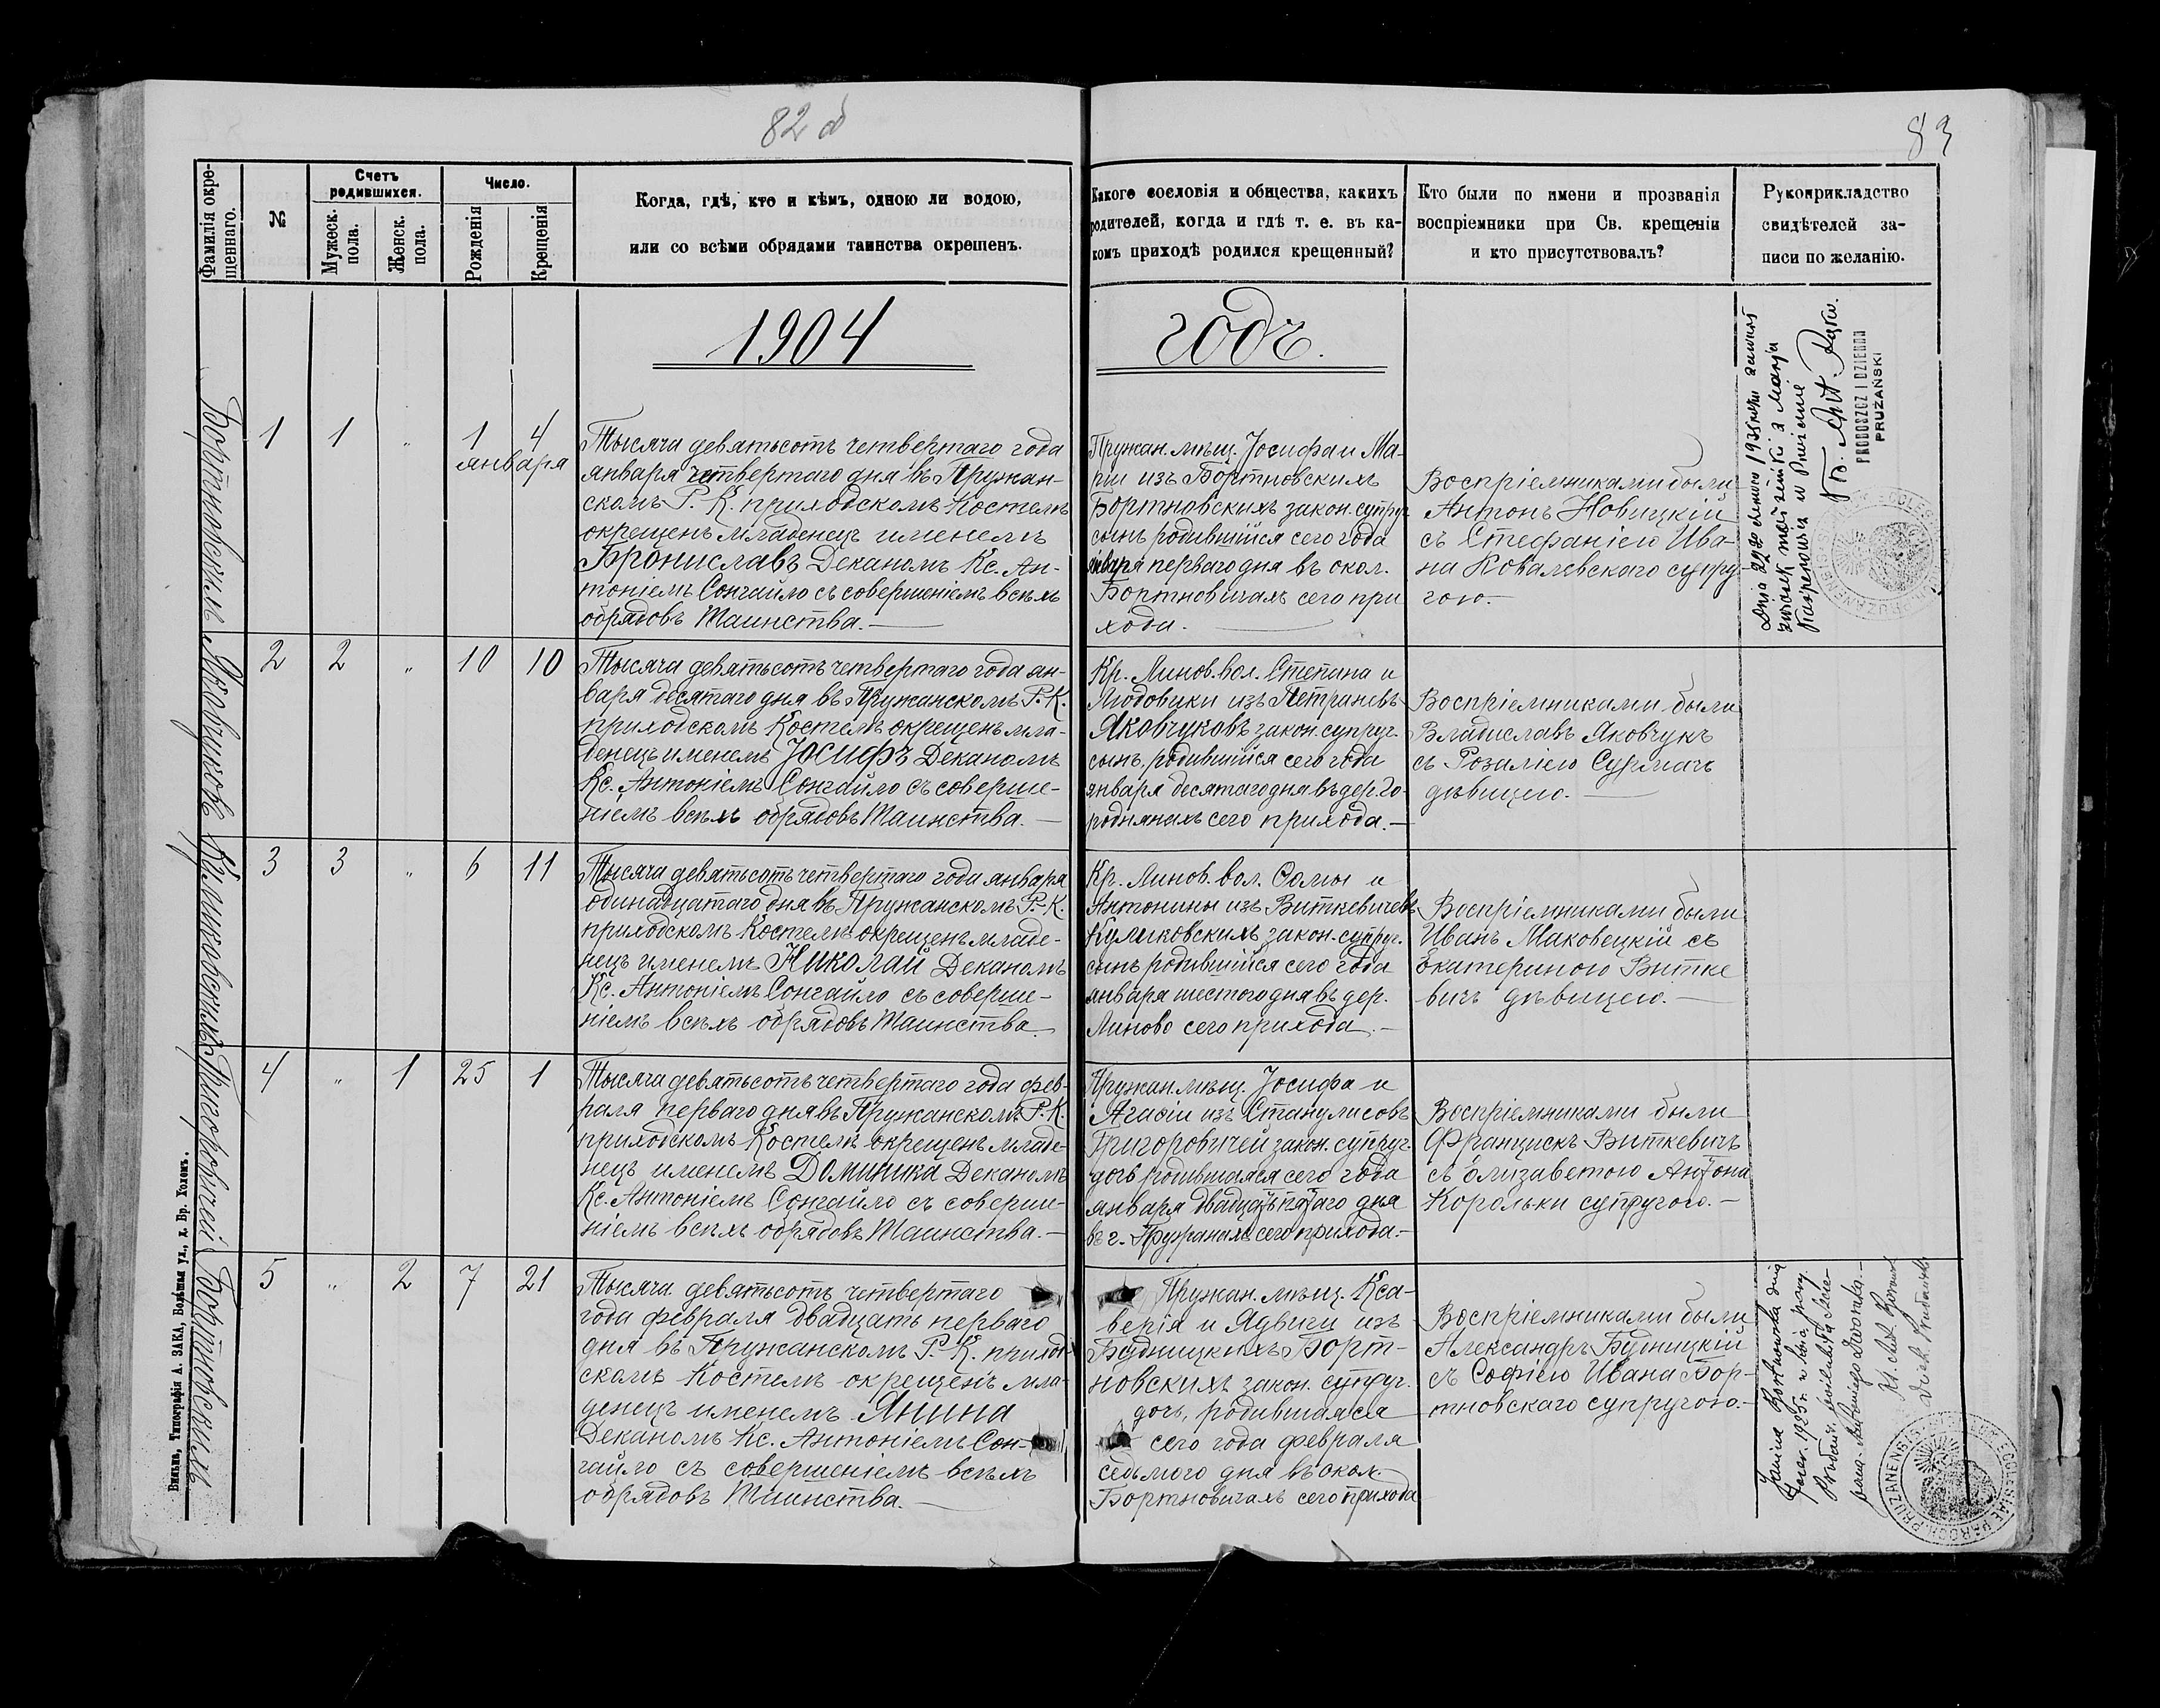 82 об
83
Фамилія окре-
щеннаго.
№
Счетъ
родившихся.
Мужеск.
пола.
Женск.
пола.
Число.
Рожденія
Крещенія
Когда, гдѣ, кто и кѣмъ, одною ли водою,
или со всѣми обрядами таинства окрещенъ.
Какого сословія и общества, какихъ
родителей, когда и гдѣ т. е. въ ка-
комъ приходѣ родился крещенный?
Кто были по имени и прозванія
воспріемники при Св. крещеніи
и кто присутствовалъ?
Рукоприкладство
свидѣтелей за-
писи по желанію.
1904
годъ.
Бортновскихъ
1 1 „ 1 4
января
Тысяча девятьсотъ четвертаго года
января четвертаго дня въ Пружан-
скомъ Р. К. приходскомъ Костелѣ
окрещенъ младенецъ именемъ
Брониславъ Деканомъ Кс. Ан-
тоніемъ Сонгайло съ совершеніемъ всѣхъ
обрядовъ Таинства.—
Пружан. мѣщ. Іосифа и Ма-
ріи изъ Бортновскихъ
Бортновскихъ закон. супруг.
сынъ родившійся сего года
января перваго дня въ окол.
Бортновичахъ сего при
хода.—
Воспріемниками были
Антонъ Новицкій
съ Стефаніею Ива-
на Ковалевскаго супру
гою.—
związek małżeński z
PROBOSZCZ I DZIEKAN
PRUŻAŃSKI
Яковчуковъ
2 2 „ 10 10
Тысяча девятьсотъ четвертаго года ян-
варя десятаго дня въ Пружанскомъ Р. К.
приходскомъ Костелѣ окрещенъ мла-
денецъ именемъ Іосифъ Деканомъ
Кс. Антоніемъ Сонгайло съ соверше-
ніемъ всѣхъ обрядовъ Таинства.—
Кр. Линов. вол. Степана и
Людовики изъ
Яковчуковъ закон. супруг.
сынъ, родившійся сего года
января десятаго дня въ дер. Го-
роднянахъ сего прихода.—
Воспріемниками были
Владиславъ Яковчукъ
съ Розаліею Сурмачъ
дѣвицею.—
Куликовскихъ
3 3 „ 6 11
Тысяча девятьсотъ четвертаго года января
одинадцатаго дня въ Пружанскомъ Р. К.
приходскомъ Костелѣ окрещенъ младе-
нецъ именемъ Николай Деканомъ
Кс. Антоніемъ Сонгайло съ соверше-
ніемъ всѣхъ обрядовъ Таинства
Кр. Линов. вол. Фомы и
Антонины изъ Виткевичевъ
Куликовскихъ закон. супруг.
сынъ родившійся сего года
января шестого дня въ дер.
Линово сего прихода.—
Воспріемниками были
Иванъ Маковецкій съ
Екатериною Витке
вичъ дѣвицею.—
Григоровичей
4 „ 1 25 1
Тысяча девятьсотъ четвертаго года фев-
раля перваго дня въ Пружанскомъ Р. К.
приходскомъ Костелѣ окрещенъ младе-
нецъ именемъ Доминика Деканомъ
Кс. Антоніемъ Сонгайло съ соверше-
ніемъ всѣхъ обрядовъ Таинства.—
Пружан. мѣщ. Іосифа и
Агафіи изъ Станулисовъ
Григоровичей закон. супруг.
дочь родившаяся сего года
января двадцать пятаго дня
въ г. Пружанахъ сего прихода.—
Воспріемниками были
Францискъ Виткевичъ
съ Елизаветою Антона
Корольки супругою.—
Бортновскихъ
5 „ 2 7 21
Тысяча девятьсотъ четвертаго
года февраля двадцать перваго
дня въ Пружанскомъ Р. К. приход-
скомъ Костелѣ окрещенъ мла-
денецъ именемъ Янина
Деканомъ Кс. Антоніемъ Сон-
гайло съ совершеніемъ всѣхъ
обрядовъ Таинства.—
Пружан. мѣщ. Кса-
верія и Ядвиги изъ
Будницкихъ Борт-
новскихъ закон. супруг.
дочь, родившаяся
сего года февраля
седьмого дня въ окол.
Бортновичахъ сего прихода
Воспріемниками были
Александръ Будницкій
съ Софіею Ивана Бор-
тновскаго супругою.—
Janina Bortnowska dnia
Вильна, Типографія А. ЗАКА, Большая ул., д. Бр. Големъ.